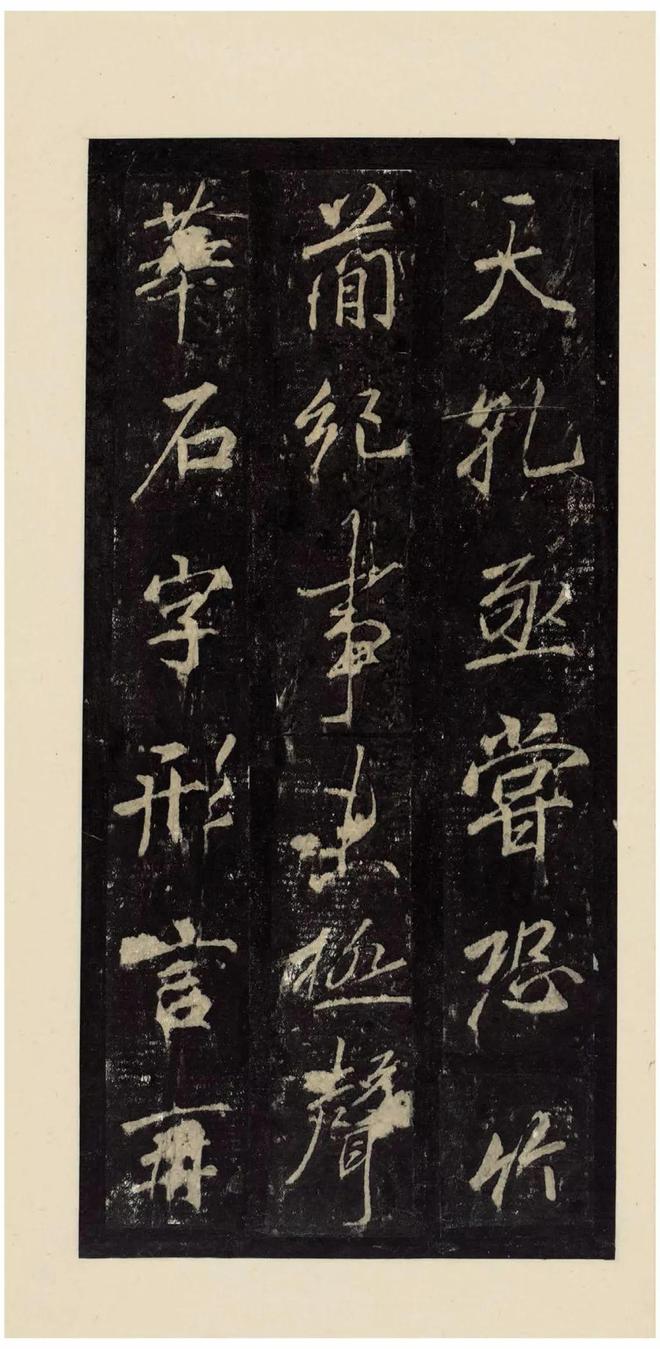 天亟嘗恐竹
簡紀事未極聲
華石字形言再